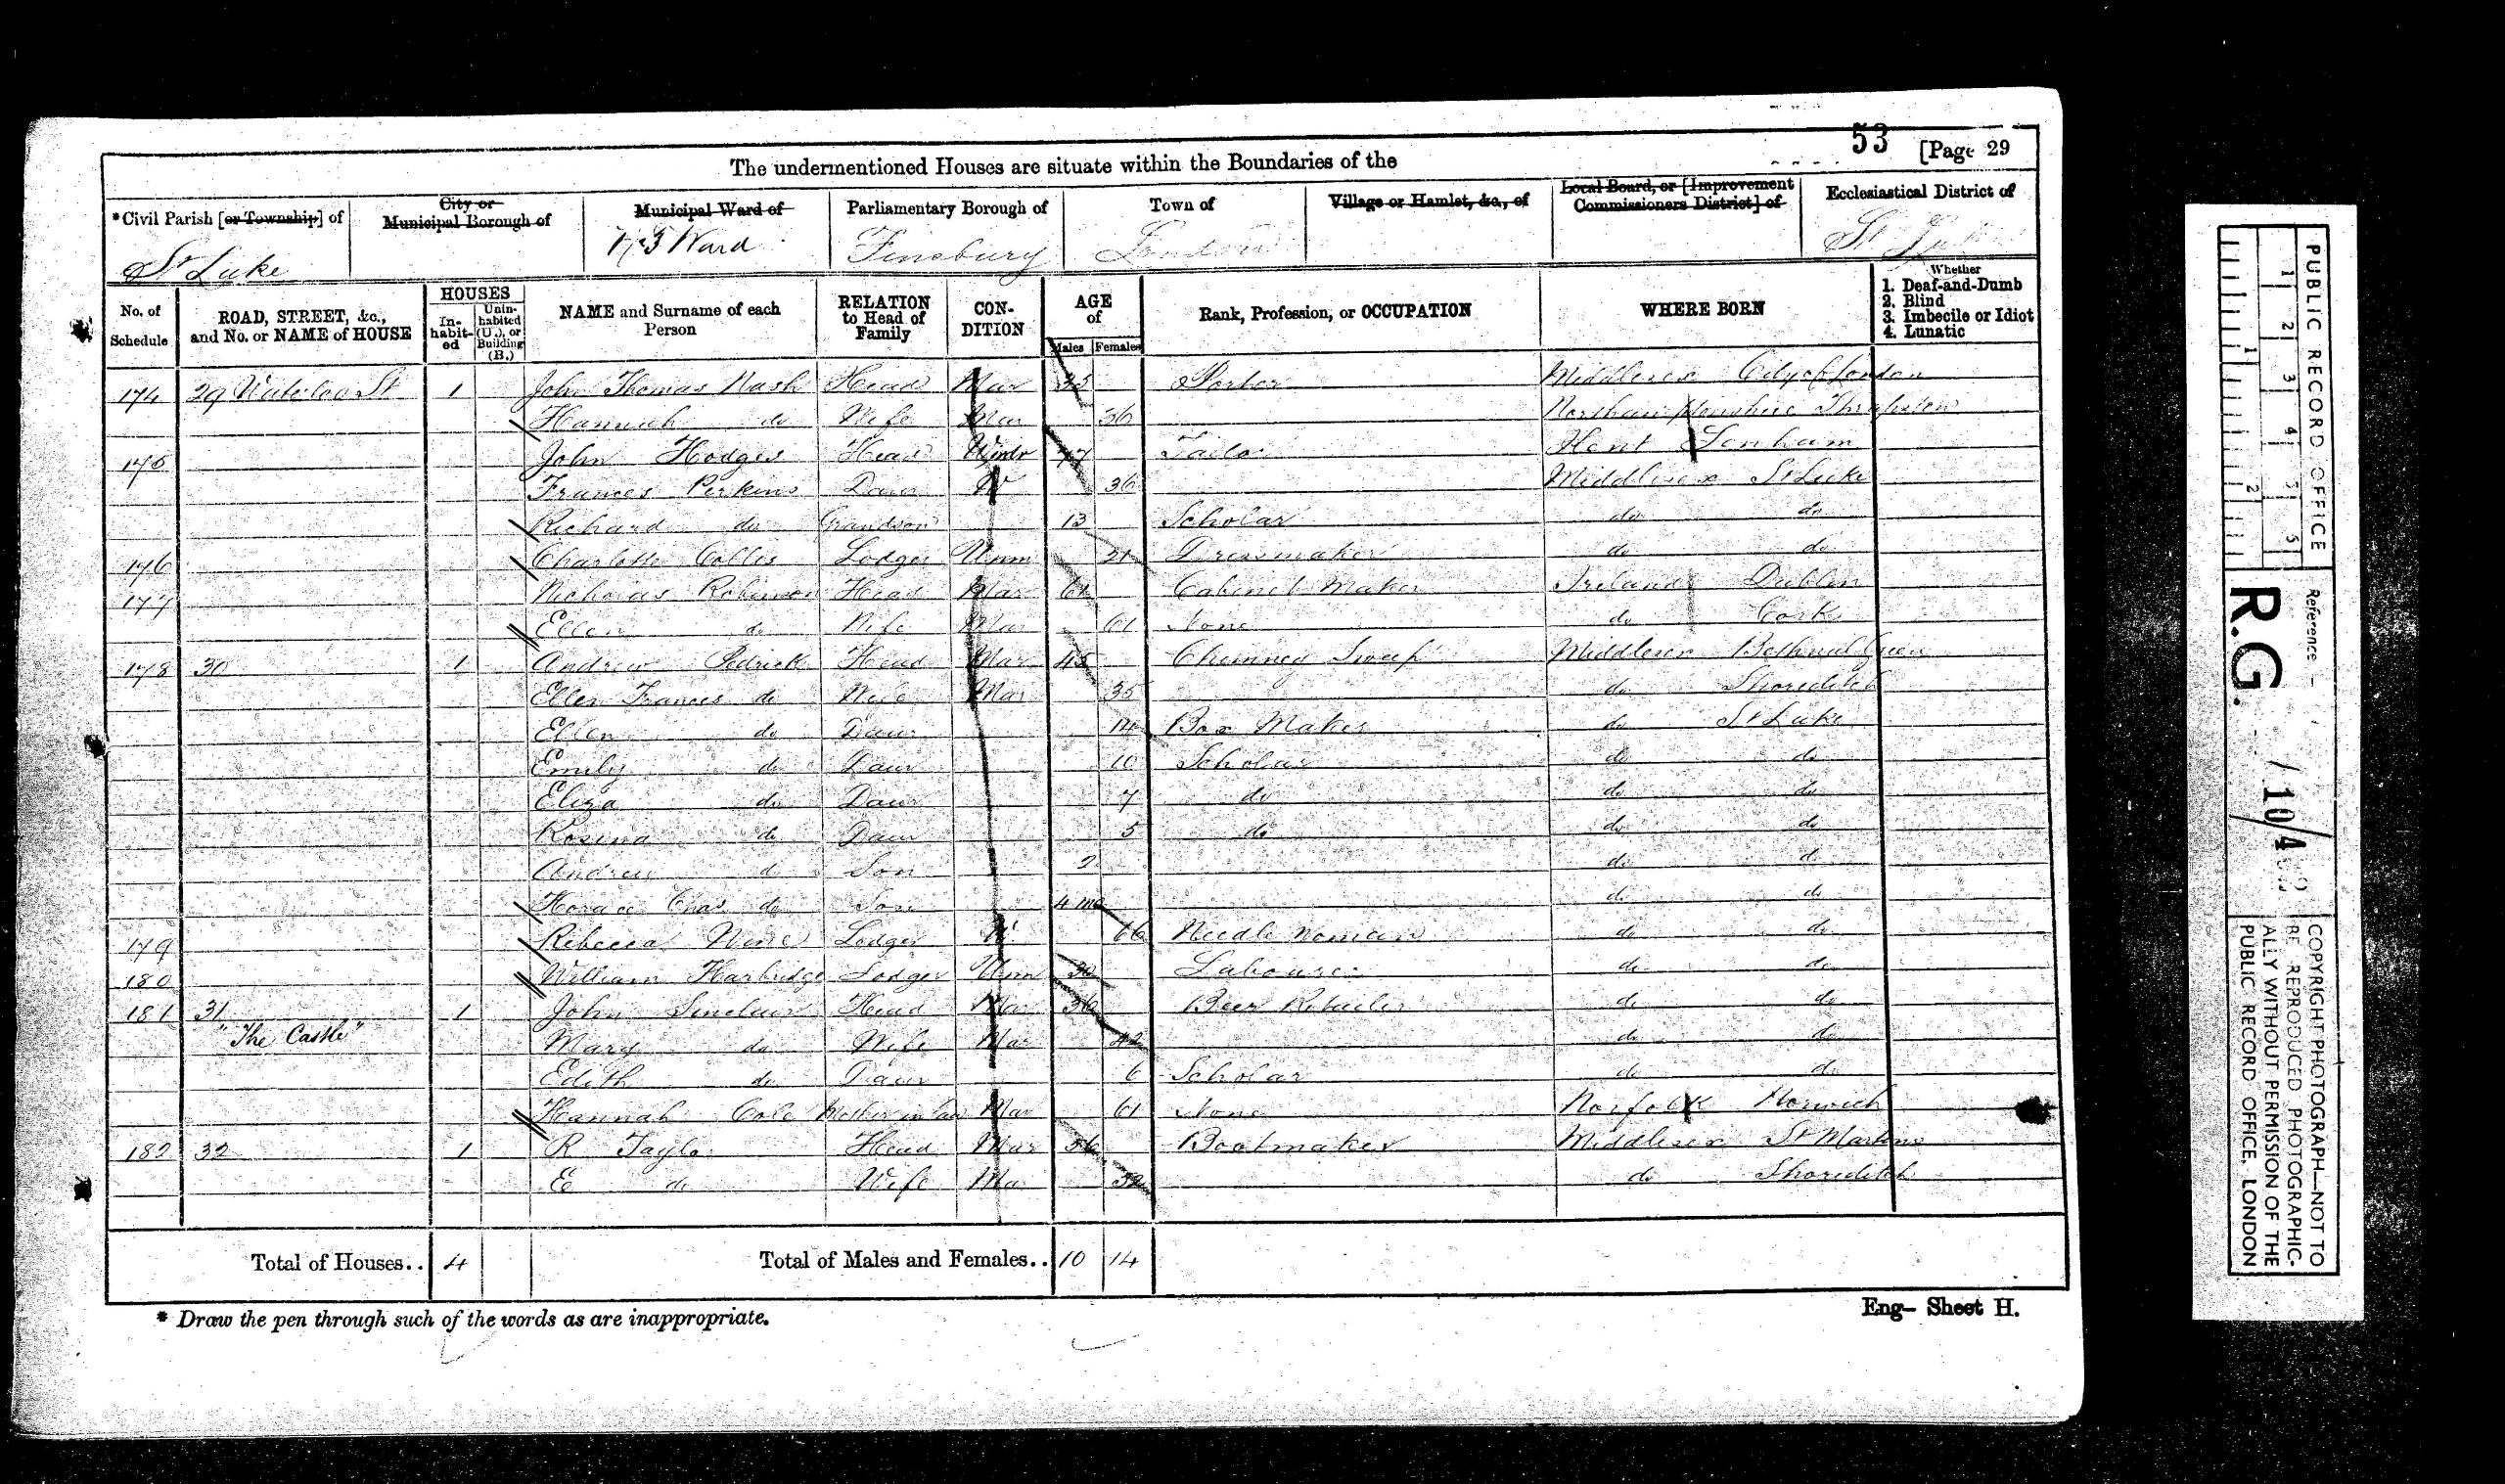 53 [Page 29
The undermentioned Houses are situate within the Boundaries of the
*Civil Parish [or Township] of
City or Municipal Borough of
Municipal Ward of
Parliamentary Borough of
Town of
Village or Hamlet, &c., of
Local Board, or [Improvement Commissioners District] of
Ecclesiastical District of
St Luke Ward Finsbury London St
No. of Schedule
ROAD, STREET, &c., and No. or NAME of HOUSE
HOUSES
In-habit-ed
Unin-habited (U.), or Building (B.)
NAME and Surname of each Person
RELATION to Head of Family
CON-DITION
AGE of
Males Females
Rank, Profession, or OCCUPATION
WHERE BORN
Whether
1. Deaf-and-Dumb
2. Blind
3. Imbecile or Idiot
4. Lunatic
174 29 Waterloo St 1 John Thomas Nash Head Mar 35 Porter Middlesex City of London
Hannah do Wife Mar 36 Northamptonshire Thrapston
175 John Hodges Head Widr 77 Tailor Kent Lenham
Frances Perkins Daur W 36 Middlesex St Luke
Richard do Grandson 13 Scholar do do
176 Charlotte Collis Lodger Unm 21 Dressmaker do do
177 Nicholas Robinson Head Mar Cabinet Maker Ireland Dublin
Ellen do Wife Mar 61 None do Cork
178 30 1 Andrew Pedrick Head Mar 45 Chimney Sweep Middlesex Bethnal Green
Ellen Frances do Wife Mar 35 do Shoreditch
Ellen do Daur 14 Box Maker do St Luke
Emily do Daur 10 Scholar do do
Eliza do Daur 7 do do do
Rosina do Daur 5 do do do
Andrew do Son 2 do do
Horace Chas do Son 4 mo do do
179 Rebecca Lodger W 66 Needle woman do do
180 William Harbidge Lodger Unm 30 Labourer do do
181 31 1 John Sinclair Head Mar 36 Beer Retailer do do
"The Castle" Mary do Wife Mar 42 do do
Edith do Daur 6 Scholar do do
Hannah Cole Mother in law Mar 61 None Norfolk Norwich
182 32 1 R Taylor Head Mar 56 Bootmaker Middlesex St Martins
E do Wife Mar 52 do Shoreditch
Total of Houses.. 4 Total of Males and Females.. 10 14
* Draw the pen through such of the words as are inappropriate.
Eng- Sheet H.
PUBLIC RECORD OFFICE
1 2 3 4 5 6
1 2
Reference -
R.G. 10/4
COPYRIGHT PHOTOGRAPH—NOT TO
BE REPRODUCED PHOTOGRAPHIC-
ALLY WITHOUT PERMISSION OF THE
PUBLIC RECORD OFFICE, LONDON